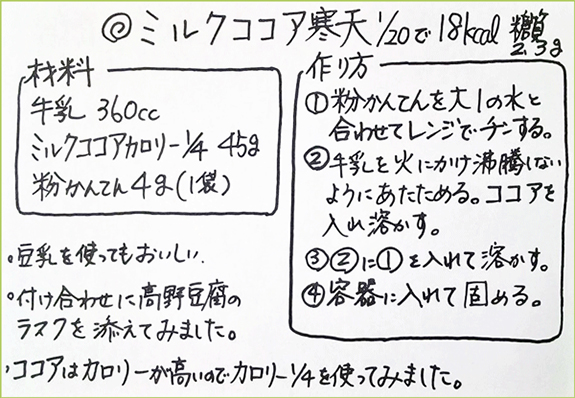 ◎ミルクココア寒天 1/20で18kcal 糖質2.3g
材料
牛乳 360cc
ミルクココアカロリー1/4 45g
粉かんてん4g(1袋)
作り方
①粉かんてんを大1の水と
合わせてレンジでチンする。
②牛乳を火にかけ沸騰しない
ようにあたためる。ココアを
入れ溶かす。
③②に①を入れて溶かす。
④容器に入れて固める。
・豆乳を使ってもおいしい.
・付け合わせに高野豆腐の
ラスクを添えてみました。
・ココアはカロリーが高いのでカロリー1/4を使ってみました。